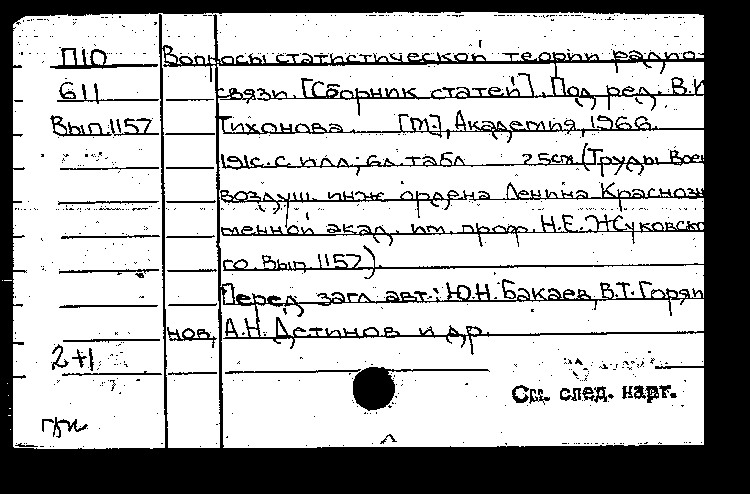 П10 Вопросы статистической теории радио-
611 связи. [Сборник статей]. Под ред. В.И
Вып.1157 Тихонова. [М.], Академия, 1966.
191с. с илл; 6л. табл 25см. (Труды Воен
воздуш. инж ордена Ленина Краснозн
менной акад. им. проф. Н.Е. Жуковско
го. Вып. 1157).
Перед загл авт.: Ю.Н. Бакаев, В.Т. Горяи
нов, А.Н. Детинов и др.
2+1
См. след. карт.